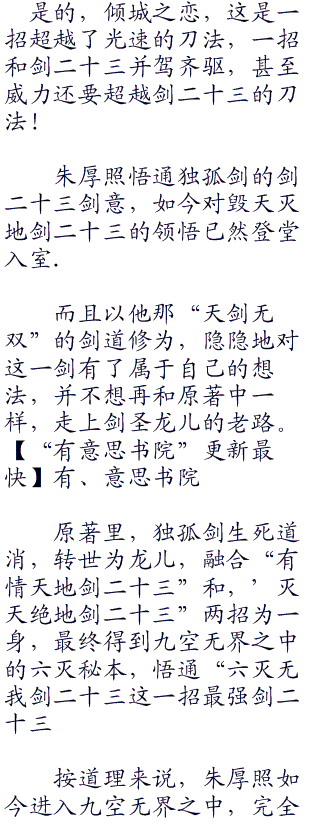 是的，倾城之恋，这是一
招超越了光速的刀法，一招
和剑二十三并驾齐驱，甚至
威力还要超越剑二十三的刀
法！
朱厚照悟通独孤剑的剑
二十三剑意，如今对毁天灭
地剑二十三的领悟已然登堂
入室．
而且以他那“天剑无
双”的剑道修为，隐隐地对
这一剑有了属于自己的想
法，并不想再和原著中一
样，走上剑圣龙儿的老路。
【“有意思书院”更新最
快】有、意思书院
原著里，独孤剑生死道
消，转世为龙儿，融合“有
情天地剑二十三”和，’灭
天绝地剑二十三”两招为一
身，最终得到九空无界之中
的六灭秘本，悟通“六灭无
我剑二十三这一招最强剑二
十三
按道理来说，朱厚照如
今进入九空无界之中，完全